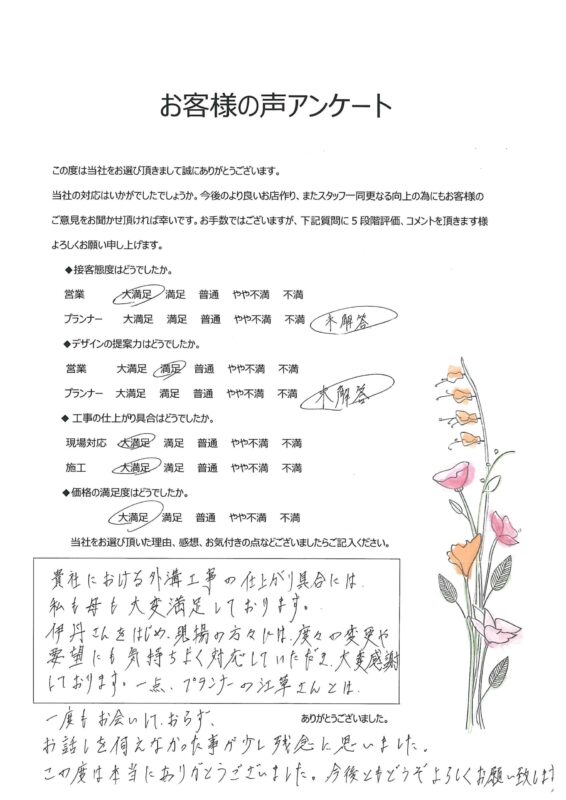 お客様の声アンケート
この度は当社をお選び頂きまして誠にありがとうございます。
当社の対応はいかがでしたでしょうか。今後のより良いお店作り、またスタッフ一同更なる向上の為にもお客様の
ご意見をお聞かせ頂ければ幸いです。お手数ではございますが、下記質問に5段階評価、コメントを頂きます様
よろしくお願い申し上げます。
◆接客態度はどうでしたか。
営業 大満足 満足 普通 やや不満 不満
プランナー 大満足 満足 普通 やや不満 不満 未解答
◆デザインの提案力はどうでしたか。
営業 大満足 満足 普通 やや不満 不満
プランナー 大満足 満足 普通 やや不満 不満 未解答
◆ 工事の仕上がり具合はどうでしたか。
現場対応 大満足 満足 普通 やや不満 不満
施工 大満足 満足 普通 やや不満 不満
◆価格の満足度はどうでしたか。
大満足 満足 普通 やや不満 不満
当社をお選び頂いた理由、感想、お気付きの点などございましたらご記入ください。
貴社における外溝工事の仕上がり具合には、
私も母も大変満足しております。
伊丹さんをはじめ、現場の方々には、度々の変更や
要望にも気持ちよく対応していただき、大変感謝
しております。一点、プランナーの江草さんとは、
一度もお会いしておらず、
ありがとうございました。
お話しを伺えなかった事が少し残念に思いました。
この度は本当にありがとうございました。今後ともどうぞよろしくお願い致します